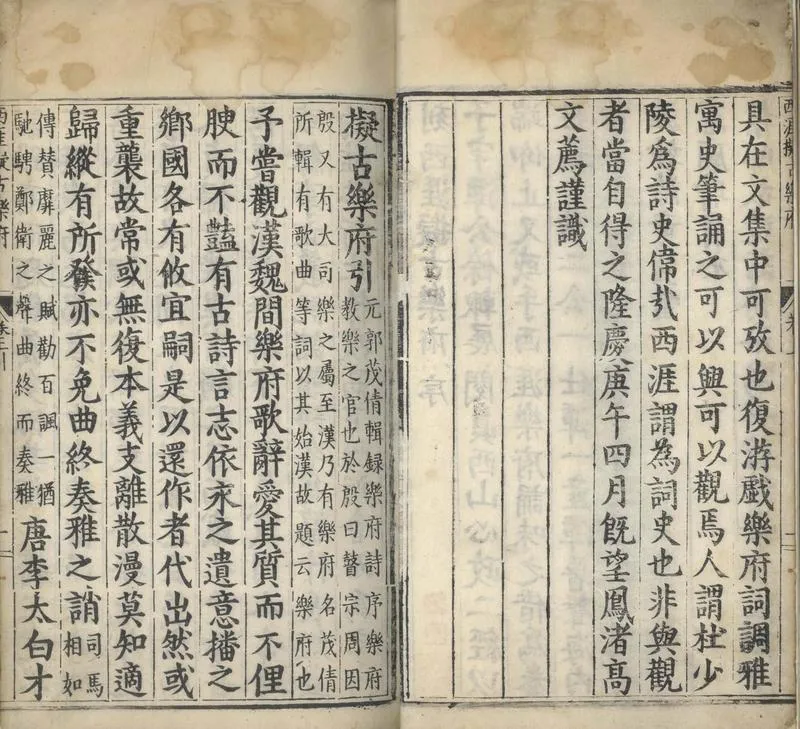 西涯擬古樂府
具在文集中可攷也復游戲樂府詞調雅
寓史筆誦之可以興可以觀焉人謂杜少
陵爲詩史偉哉西涯謂為詞史也非與觀
者當自得之隆慶庚午四月旣望鳳渚高
文薦謹識
擬古樂府引
元郭茂倩輯録樂府詩序樂府
教樂之官也於殷曰瞽宗周因
殷又有大司樂之屬至漢乃有樂府名茂倩
所輯有歌曲等詞以其始漢故題云樂府也
予嘗觀漢魏間樂府歌辭愛其質而不俚
腴而不豔有古詩言志依永之遺意播之
鄉國各有攸宜嗣是以還作者代出然或
重襲故常或無復本義支離散漫莫知適
歸縱有所發亦不免曲終奏雅之誚
司馬
相如
傳賛靡麗之賦勸百諷一猶
馳騁鄭衛之聲曲終而奏雅
唐李太白才
西涯擬古樂府